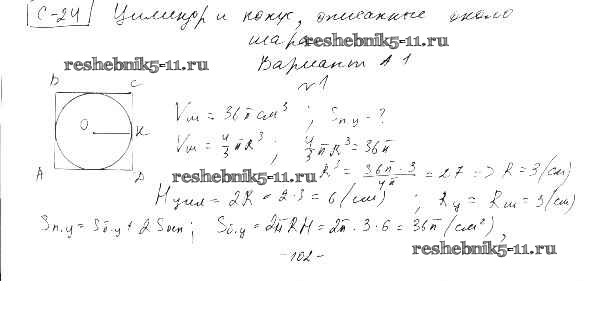 С-24 Цилиндр и конус, описанные около
шара reshebnik5-11.ru
reshebnik5-11.ru Вариант А1
№1
B C
O K
A D
Vш = 36π см³ ; Sп.ц - ?
Vш = 4/3 πR³ ; 4/3 πR³ = 36π
reshebnik5-11.ru R³ = 36π·3/4π = 27 => R = 3 (см)
Hцил = 2R = 2·3 = 6 (см) ; Rц = Rш = 3 (см)
Sп.ц = Sб.ц + 2Sосн ; Sб.ц = 2πRH = 2π·3·6 = 36π (см²),
-102- reshebnik5-11.ru